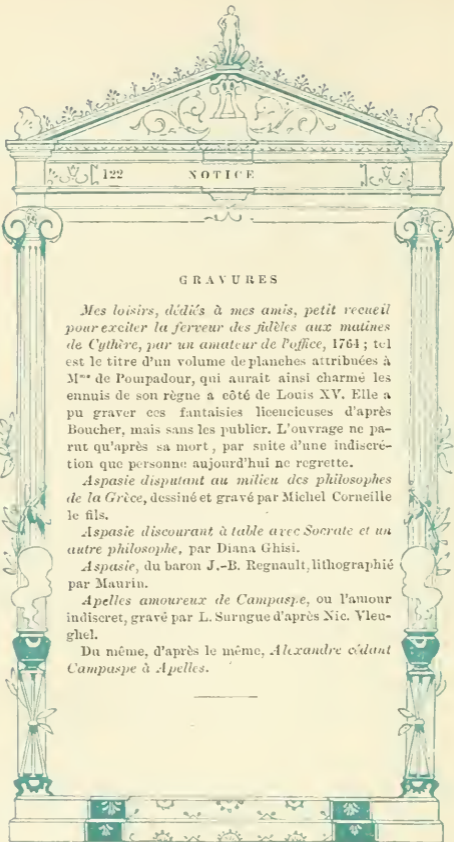 122 NOTICE
GRAVURES
Mes loisirs, dédiés à mes amis, petit recueil
pour exciter la ferveur des fidèles aux matines
de Cythère, par un amateur de l'office, 1764 ; tel
est le titre d'un volume de planches attribuées à
Mme de Pompadour, qui aurait ainsi charmé les
ennuis de son règne a côté de Louis XV. Elle a
pu graver ces fantaisies licencieuses d'après
Boucher, mais sans les publier. L'ouvrage ne pa-
rut qu'après sa mort, par suite d'une indiscré-
tion que personne aujourd'hui ne regrette.
Aspasie disputant au milieu des philosophes
de la Grèce, dessiné et gravé par Michel Corneille
le fils.
Aspasie discourant à table avec Socrate et un
autre philosophe, par Diana Ghisi.
Aspasie, du baron J.-B. Regnault, lithographié
par Maurin.
Apelles amoureux de Campaspe, ou l'amour
indiscret, gravé par L. Surugue d'après Nic. Vleu-
ghel.
Du même, d'après le même, Alexandre cédant
Campaspe à Apelles.